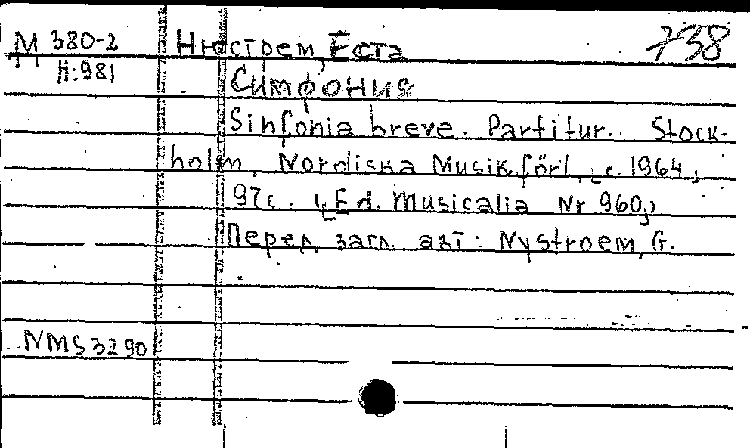 М 380-2 Нюстрем, Еста 738
Н:981
Симфония
Sinfonia breve. Partitur. Stock-
holm, Nordiska Musikförl., [c. 1964,]
97с. ([Ed. Musicalia Nr 960,])
Перед загл. авт: Nystroem, G.
NMS 3290